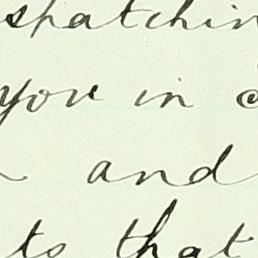 spatchin
you in
and
to that